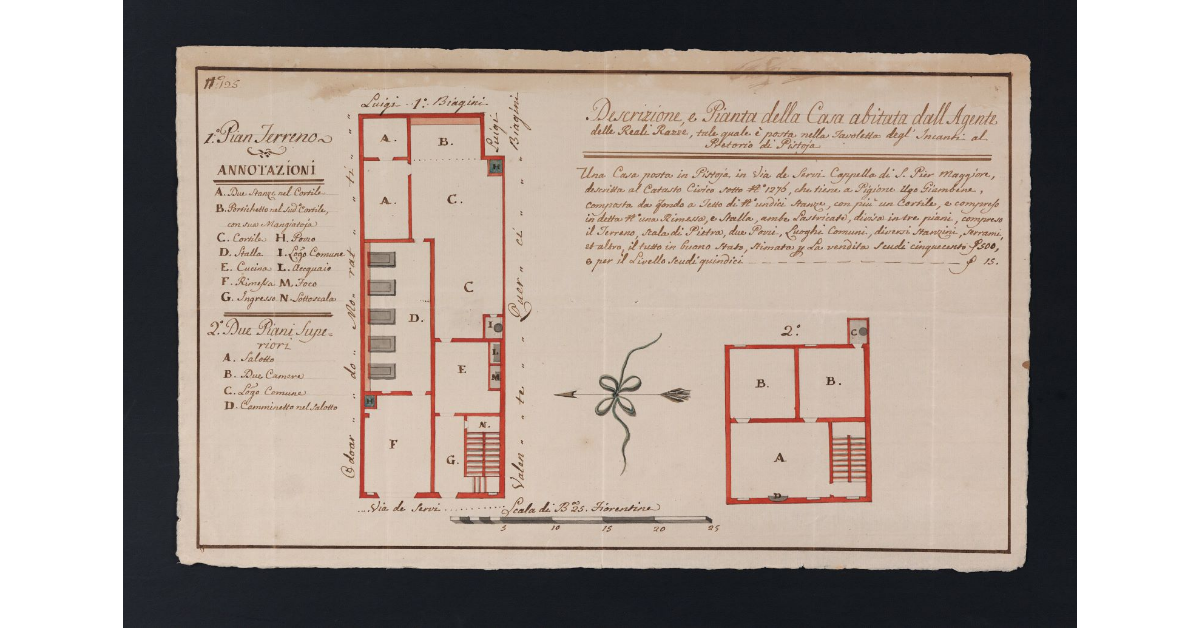 N.º 125
1.º Pian Terreno
ANNOTAZIONI
A. Due Stanze nel Cortile
B. Portichetto nel Sud.º Cortile,
con sua Mangiatoja
C. Cortile H. Pozzo
D. Stalla I. Logo Comune
E. Cucina L. Acquaio
F. Rimessa M. Foco
G. Ingresso N. Sottoscala
2.º Due Piani Supe-
riori
A. Salotto
B. Due Camere
C. Logo Comune
D. Camminetto nel Salotto
Luigi 1.º Biagini
Luigi Biagini
Edoardo Morati
Valente Querci
A.
B.
H
A.
C.
C
D.
I
E
L
M
H
F
G.
N.
Via de Servi
Scala di B.ª 25. Fiorentine
5 10 15 20 25
Descrizione, e Pianta della Casa abitata dall Agente
delle Reali Razze, tale quale è posta nella Tavoletta degl' Incanti al
Pretorio di Pistoja
Una Casa posta in Pistoja in Via de Servi Cappella di S. Pier Maggiore,
descritta al Catasto Civico sotto N.º 1276, che tiene a Pigione Ugo Giambene,
composta da fondo a Tetto di N.º undici Stanze, con più un Cortile, e compreso
in detta N.º una Rimessa, e Stalla, ambe Lastricate, divisa in tre piani, compreso
il Terreno, Scala di Pietra, due Pozzi, Luoghi Comuni, diversi Stanzini, Serrami,
et altro, il tutto in buono Stato, Stimata p La vendita Scudi cinquecento 500,
e per il Livello Scudi quindici 15.
2.º
C
B.
B.
A
D